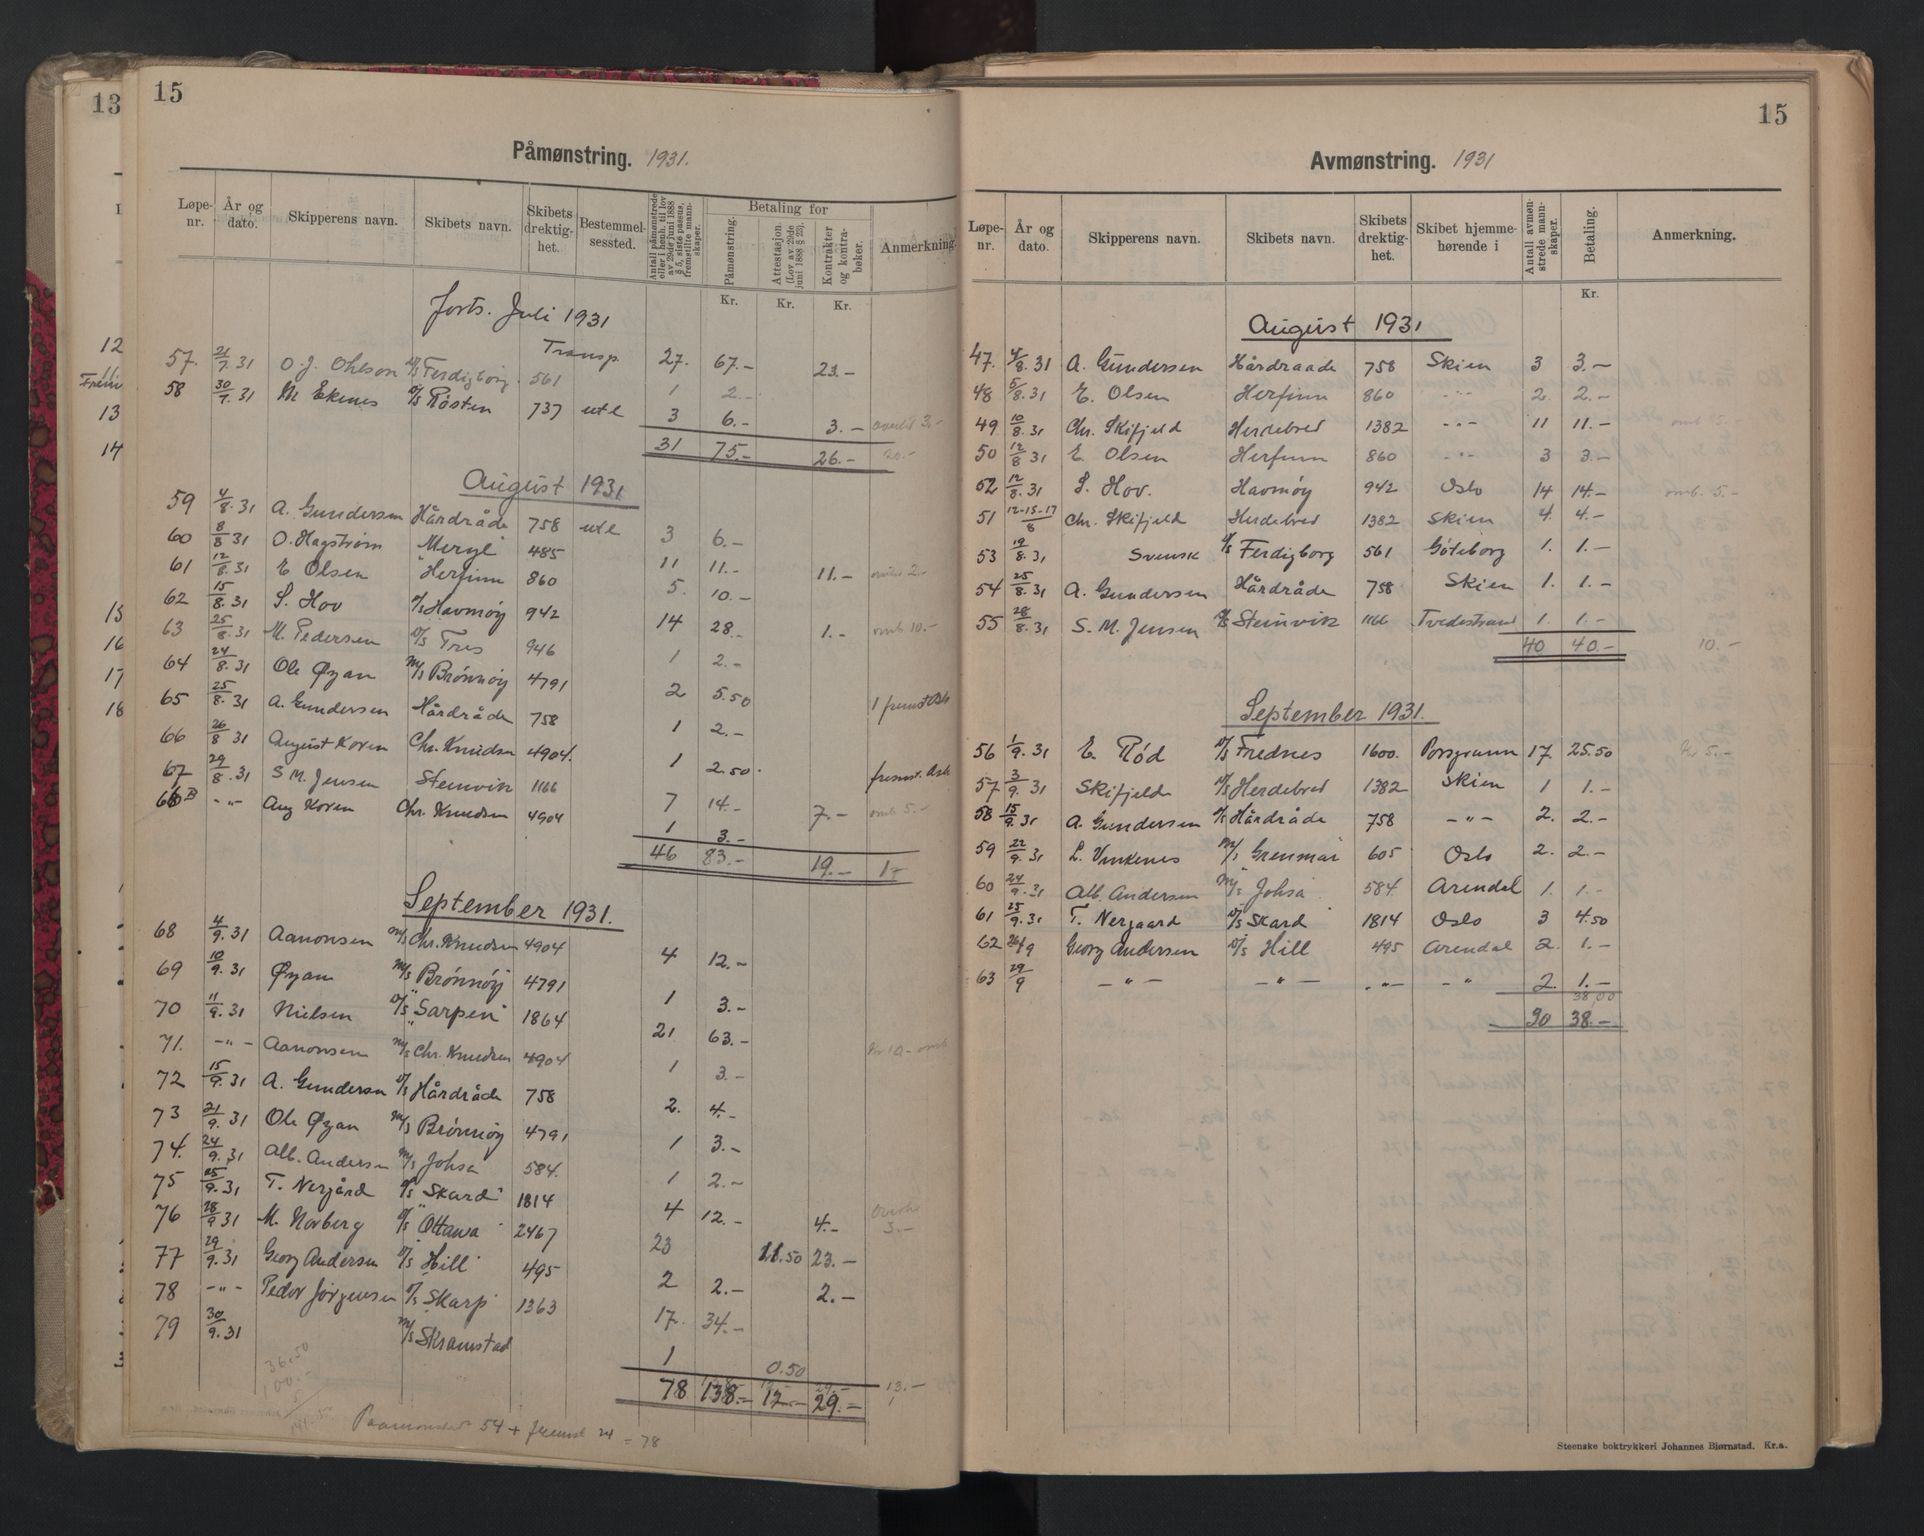 13
15
Påmønstring. 1931.
Løpe-nr. År og dato. Skipperens navn. Skibets navn. Skibets drektighet. Bestemmelsessted. Antall påmønstrede eller i henh. til lov av 29de juni 1888 § 5, siste passus, fremstilte mannskaper. Betaling for Påmønstring. Attestasjon. (Lov av 29de juni 1888 § 23). Kontrakter og kontrabøker. Anmerkning.
Kr. Kr. Kr.
Forts. Juli 1931
Transp. 27. 67.- 23.-
57. 21/7.31 O. J. Ohlson D/S Ferdigborg. 561 1 2.-
58 30/7.31 M. Ekenes D/S Røsten 737 utl 3 6.- 3.-
31 75.- 26.- 20.-
August 1931
59 4/8.31 A. Gundersen Hårdråde 758 utl 3 6.-
60 8/8 31 O. Hagstrøm "Meryl" 485 11 11.- 11.-
61 12/8.31 E Olsen "Herfinn 860 5. 10.-
62 15/8.31 S. Hov D/S Havmøy 942 14 28.- 1.- omb 10.-
63 25/8.31 M. Pedersen D/S Tres 946 1 2.-
64 24/8.31 Ole Øyan M/S Brønnøy 4791 2 5.50
65 25/8.31 A. Gundersen Hårdråde 758 1 2.-
66 26/8 31 August Koren Chr. Knudsen 4904. 1 2.50
67 29/8.31 S M. Jensen Steinvik 1166 7 14.- 7.- omb 5.-
66B -"- Aug Koren Chr. Knudsen 4904 1 3.-
46 83.- 19.- 17
September 1931.
68 4/9.31 Aanonsen M/S Chr. Knudsen 4904 4 12.-
69 10/9.31 Øyan M/S Brønnøy 4791 1 3.-
70 11/9.31 Nielsen D/S "Sarpen" 1864 21 63.-
71. -"- Aanonsen M/S Chr. Knudsen 4904 1 3.-
72 15/9.31 A. Gundersen D/S Hårdråde 758 2. 4.-
73 21/9.31 Ole Øyan M/S Brønnøy 4791 1 3.-
74. 24/9.31 Alb. Andersen M/S Johsa 584. 1 2.-
75 25/9.31 T. Nergård D/S "Skard" 1814 4 12.- 4.-
76 28/9 31 M. Norberg D/S "Ottawa" 2467 23 11.50 23.-
77 29/9.31 Georg Andersen D/S Hill 495 2 2.- 2.-
78 -"- Peder Jørgensen D/S Skarp 1363 17. 34.-
79 30/9.31 M/S Skramstad 1 0.50
78 138.- 12.- 29.- 13.-
36.50
100.-
Paamønstret 54 + fremst 24 = 78
15
Avmønstring. 1931
Løpe-nr. År og dato. Skipperens navn. Skibets navn. Skibets drektighet. Skibet hjemmehørende i Antall avmønstrede mannskaper. Betaling. Anmerkning.
Kr.
August 1931
47. 4/8.31 A. Gundersen Hårdraade 758 Skien 3 3.-
48 5/8.31 E. Olsen Herfinn 860 -"- 2. 2.-
49 10/8.31 Chr. Skifjeld Herdebred 1382 -"- 11 11.- omb 5.-
50 12/8 31 E. Olsen Herfinn 860 -"- 3 3.-
52 12/8.31 S. Hov. Havmøy 942 Oslo 14 14.- omb. 5.-
51 12-15-17/8 Chr. Skifjeld Herdebred 1382 Skien 4. 4.-
53 19/8.31 Svensk D/S Ferdigborg 561 Göteborg 1. 1.-
54 25/8.31 A. Gundersen Hårdråde 758 Skien 1. 1.-
55 28/8.31 S. M. Jensen D/S Steinvik 1166 Tvedestrand 1. 1.-
40 40.- 10.-
September 1931.
56 1/9.31 E. Rød D/S Frednes 1600. Porsgrunn 17. 25.50 Kr 5.-
57 3/9.31 Skifjeld D/S Herdebred 1382 Skien 1 1.-
58 15/9.31 A. Gundersen D/S Hårdråde 758 -"- 2. 2.-
59 22/9.31 L. Vinkenes M/S Grenmar 605 Oslo 2. 2.-
60 24/9.31 Alb. Andersen M/S Johsa 584 Arendal 1. 1.-
61 25/9.31 T. Nergaard D/S Skard 1814 Oslo 3 4.50
62 26/9 Georg Andersen D/S Hill 495 Arendal 2. 1.-
63 29/9 -"- -"- -"- -"- 2. 1.-
38,00
30 38.-
Steenske boktrykkeri Johannes Bjørnstad. Kr.a.